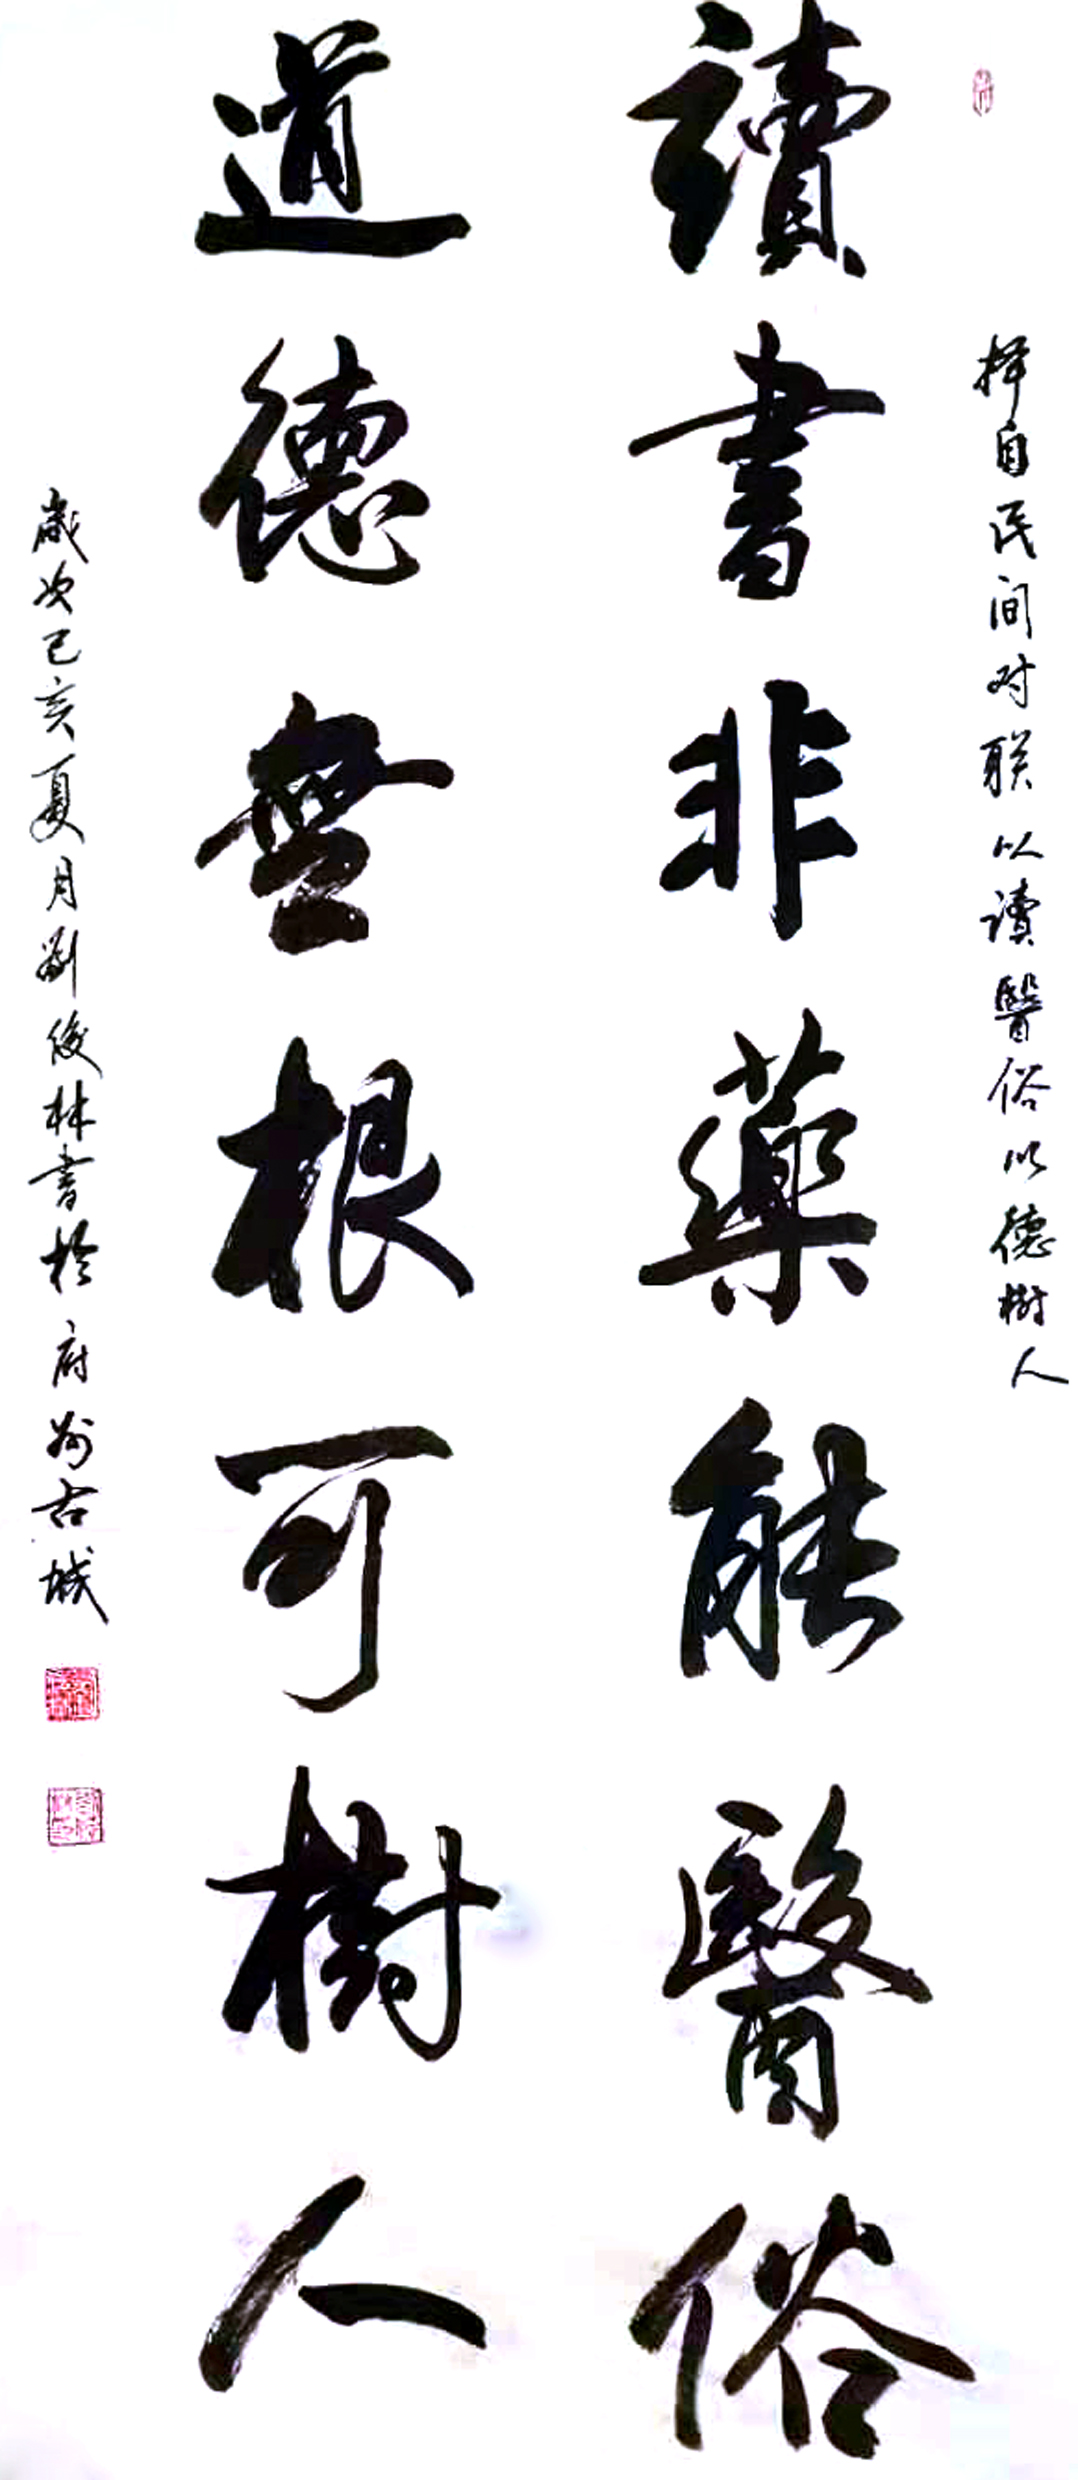 择自民间对联以读醫俗以德樹人
讀書非藥能醫俗
道德無根可樹人
歲次己亥夏月劉俊林書於府州古城